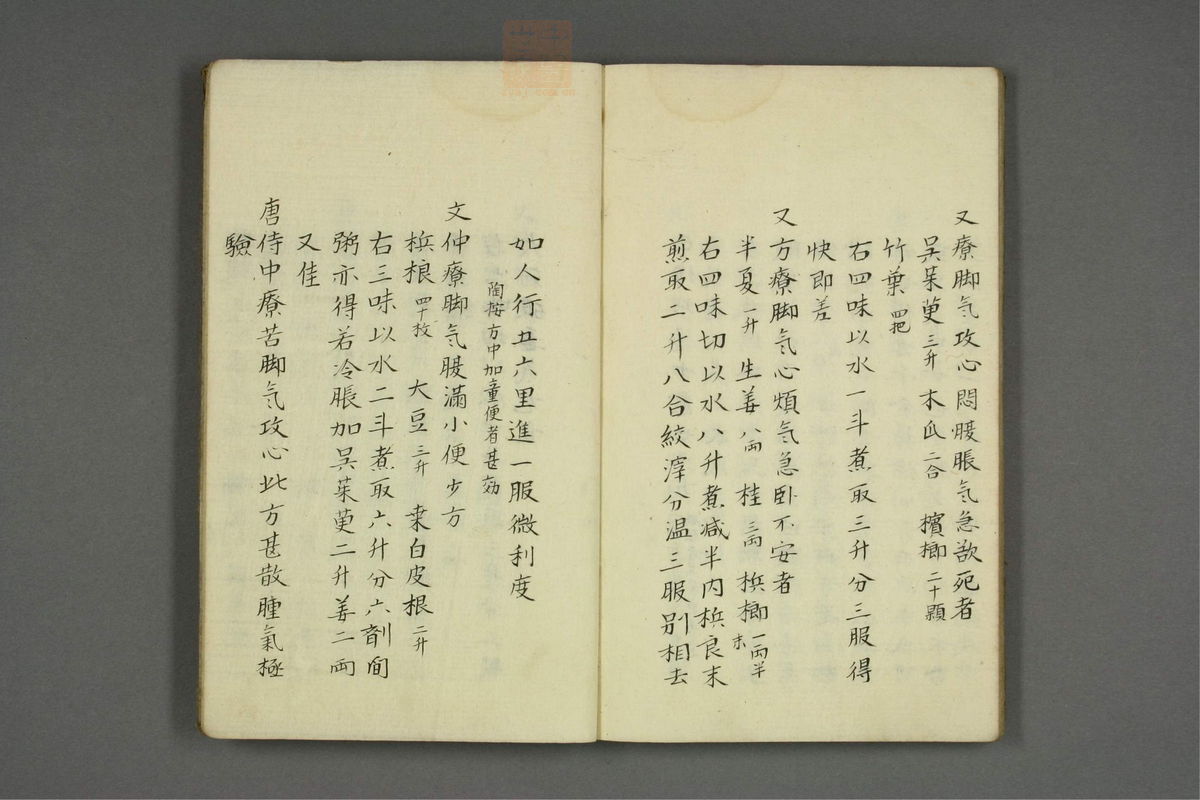 又療脚气攻心悶腹脹气急欲死者
吳茱萸三升 木瓜二合 檳榔二十顆
竹葉四把
右四味以水一斗煮取三升分三服得
快即差
又方療脚气心煩气急卧不安者
半夏一升 生姜八両 桂三両 梹榔一両半末
右四味切以水八升煮减半内梹良末
煎取二升八合絞滓分温三服别相去
如人行五六里進一服微利度
陶按方中加童便者甚効
文仲療脚气腹滿小便少方
梹桹四十枚 大豆三升 桒白皮根二升
右三味以水二斗煮取六升分六劑間
粥亦得若冷脹加吳茱萸二升姜二両
又佳
唐侍中療苦脚气攻心此方甚散腫氣極
驗